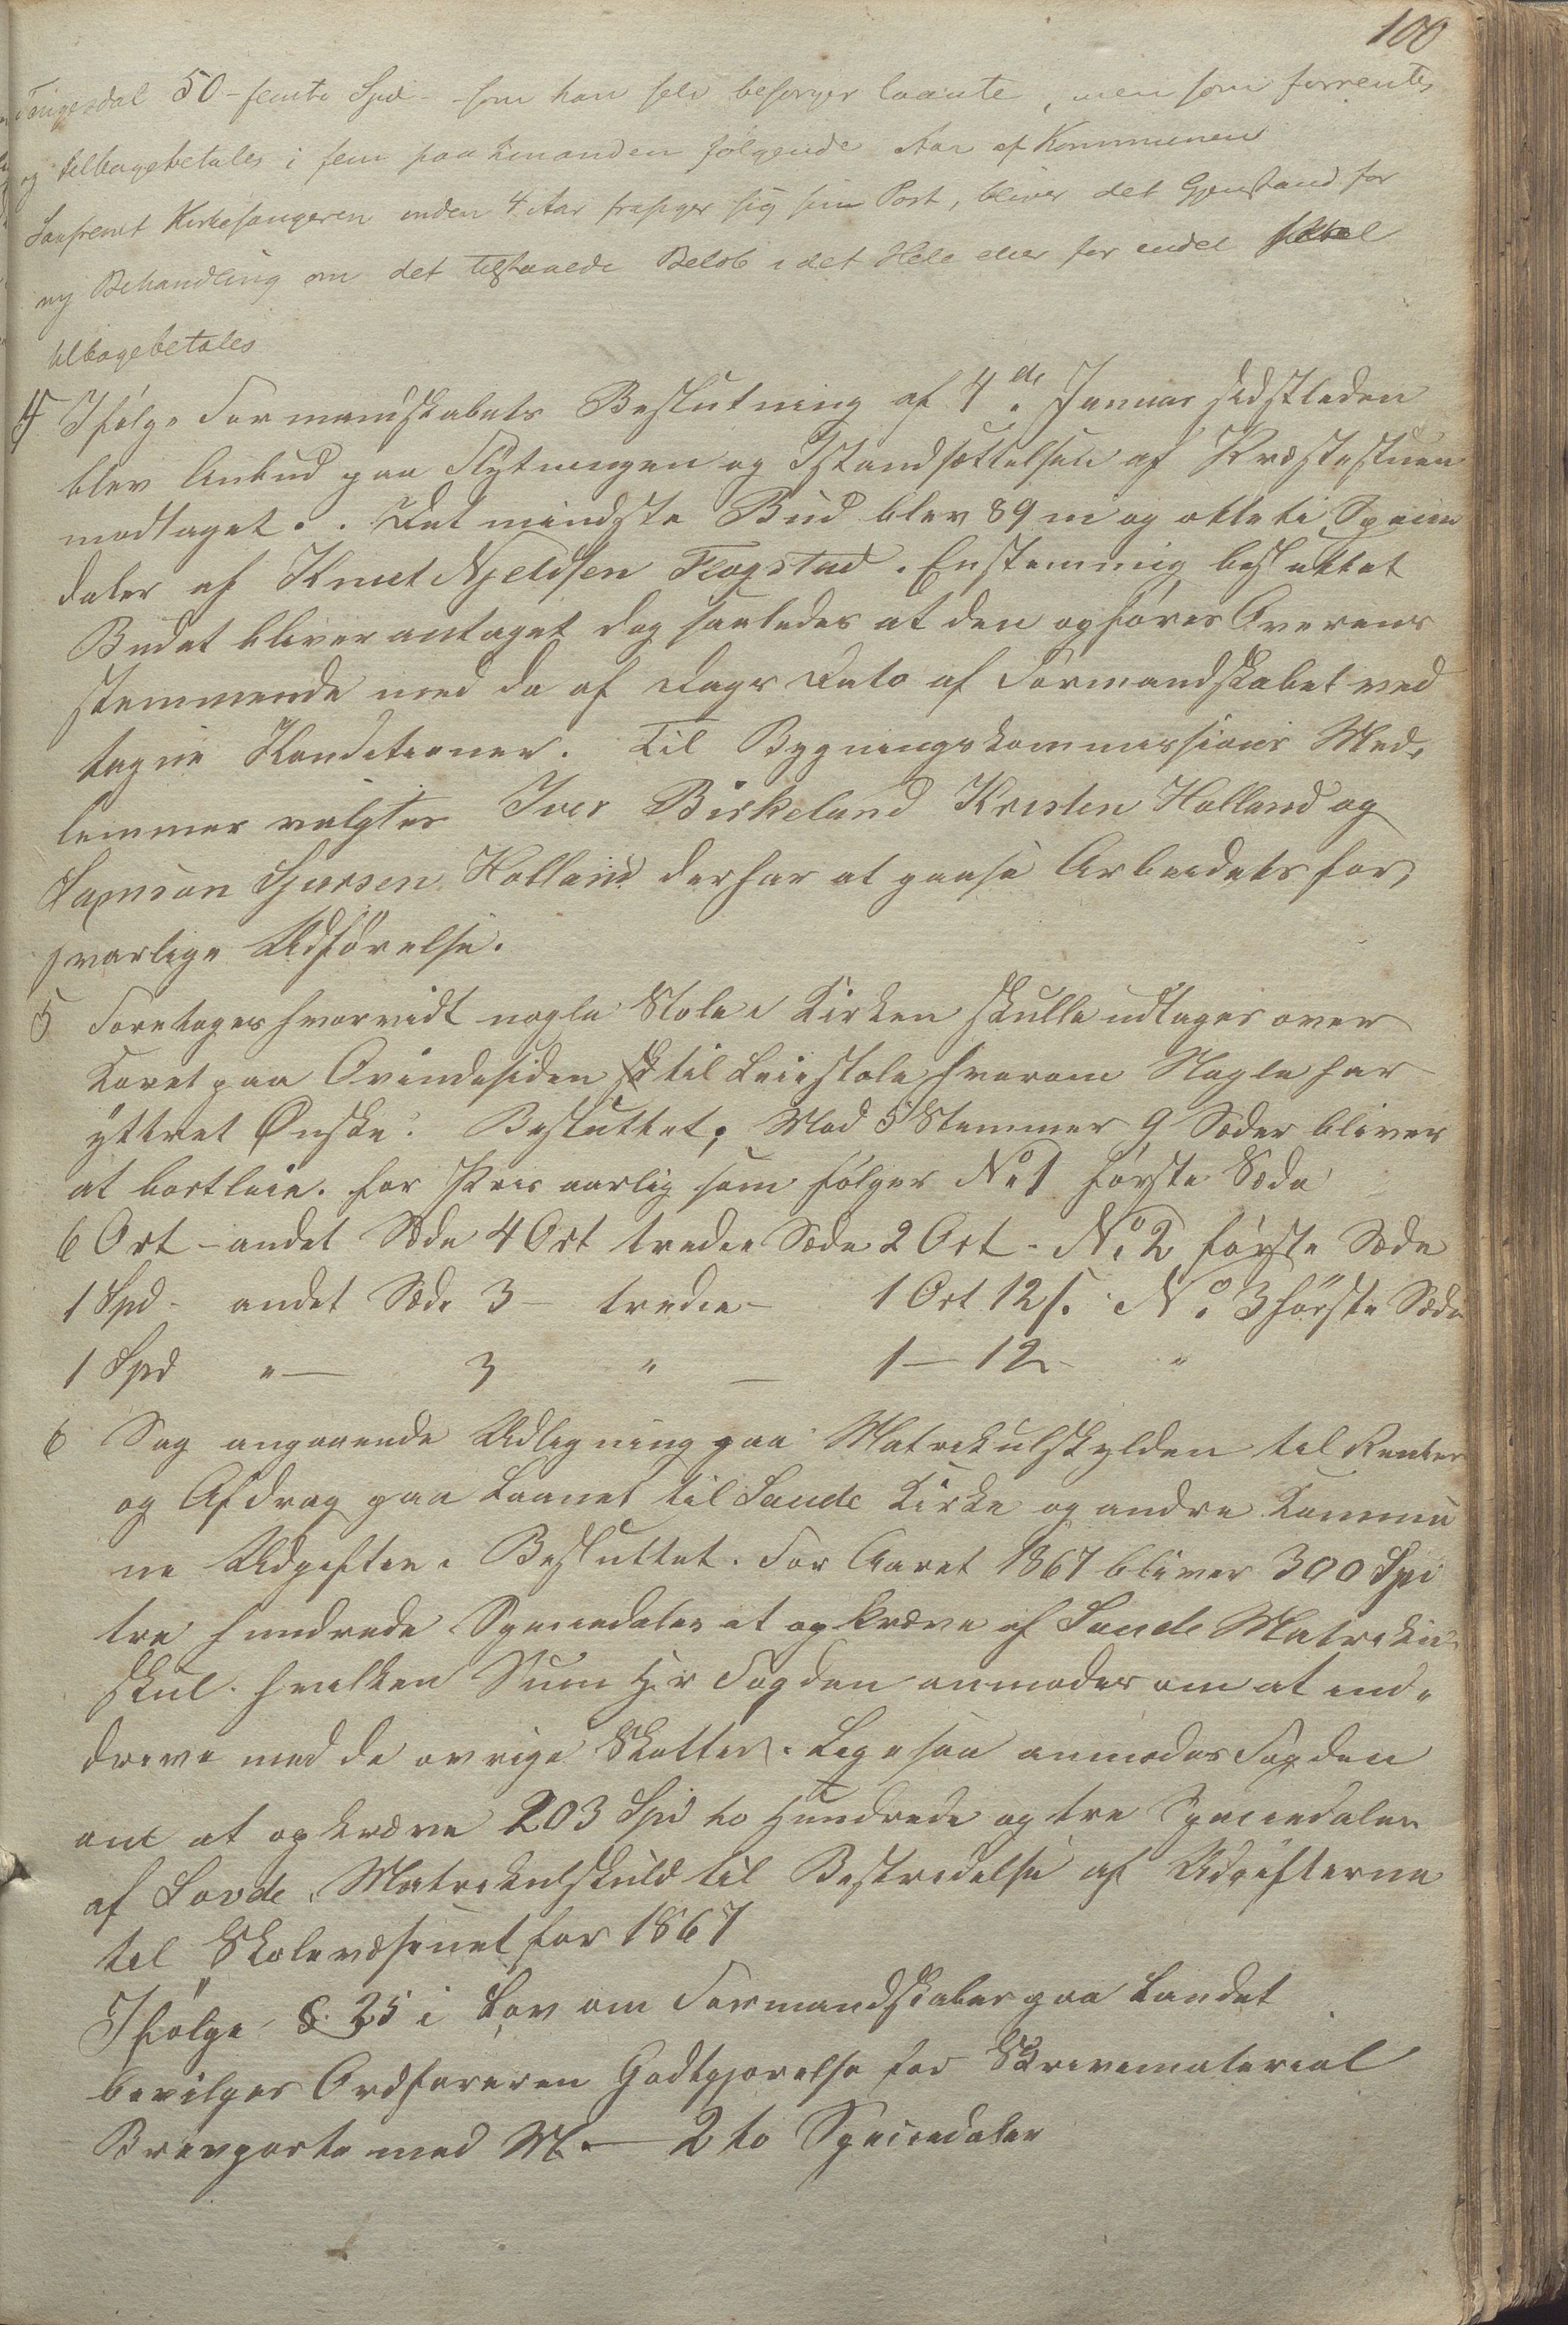 100
Tengesdal 50 - femti Spd - som han selv besørger laante, men som forrentes
og tilbagebetales i fem paa hinanden følgende Aar af Kommunen
Saafremt Kirkesangeren inden 4 Aar frasiger sig sin Post, bliver det Gjenstand for
ny Behandling om det tilstaaede Beløb i det Hele eller for endel skal
tilbagebetales
4 Ifølge Formandskabets Beslutning af 4de Januar sidstleden
blev Anbud paa Flytningen og Istandsættelsen af Præstestuen
modtaget. Det mindste Bud blev 89 ni og otteti Specie
daler af Knut Njeldsen Flogstad. Enstemmig besluttet
Budet bliver antaget dog saaledes at den opføres Overens
stemmende med de af Dags Dato af Formandskabet ved
tagne Konditioner. Til Bygningskommissions Med,
lemmer valgtes Iver Birkeland Kristen Holland og
Samson Sjursen Holland der har at paase Arbeidets for,
svarlige Udførelse.
5 Foretages hvorvidt nogle Stole i Kirken skulle udtages over
Koret paa Qvindesiden til Leiestole hvorom Nogle har
yttret Ønske. Besluttet; Med 5 Stemmer 9 Sæder bliver
at bortleie. for Pris aarlig som følger No 1 første Sæde
6 Ort - andet Sæde 4 Ort tredie Sæde 2 Ort - No 2 første Sæde
1 Spd - andet Sæde 3 - tredie - 1 Ort 12 s. No 3 første Sæde
1 Spd " — 3 " — 1 — 12 - "
6 Sag angaaende Udligning paa Matrikulskylden til Renter
og Afdrag paa Laanet til Saude Kirke og andre Kommu
ne Udgifter. Besluttet. For Aaret 1867 bliver 300 Spd
tre hundrede Speciedaler at opkræve af Saude Matriku
skul. hvilken Sum Hr Fogden anmodes om at ind,
drive med de øvrige Skatter. Ligesaa anmodes Fogden
om at opkræve 203 Spd to Hundrede og tre Speciedaler
af Sovde Matrikulskuld til Bestridelse af Udgifterne
til Skolevæsenet for 1867
Ifølge §. 25 i Lov om Formandskaber paa Landet
bevilges Ordføreren Godtgjørelse for Skrivematerial
Brevporto med — 2 to Speciedaler